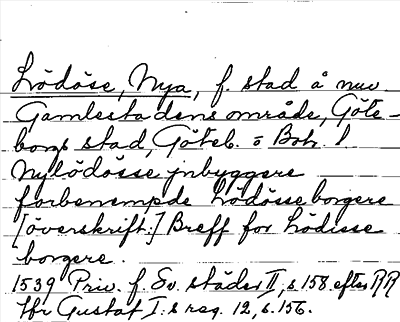 Lödöse, Nya, f. stad å nuv.
Gamlestadens område, Göte-
borgs stad, Göteb. o Boh. l
Nylödösse jnbyggere
forbenempde Lödösse borgere
[överskrift:] Breff for Lödisse
borgere.
1539 Priv. f. Sv. städer II, s 158 efter RR
Hfr Gustaf I:s reg. 12, s. 156.